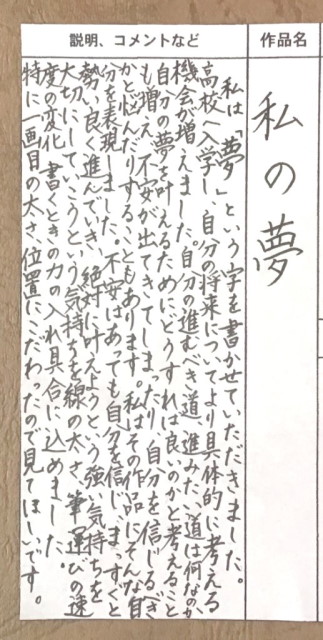 作品名
私の夢
説明、コメントなど
私は「夢」という字を書かせていただきました。
高校へ入学し、自分の将来についてより具体的に考える
機会が増えました。自分の進むべき道、進みたい道は何なのか
自分の夢を叶えるためにどうすれば良いのかと考えること
も増え、不安が出てきてしまったり、自分を信じるべき
かと悩んだりすることもあります。私はその作品にそんな自
分を表現しました。不安はあっても自分を信じ、まっすぐと
勢い良く進んでいき、絶対に叶えようという強い気持ちを
大切にしていこうという気持ちを線の太さ、筆運びの速
度の変化、書くときの力の入れ具合に込めました。
特に一画目の太さ、位置にこだわったので見てほしいです。